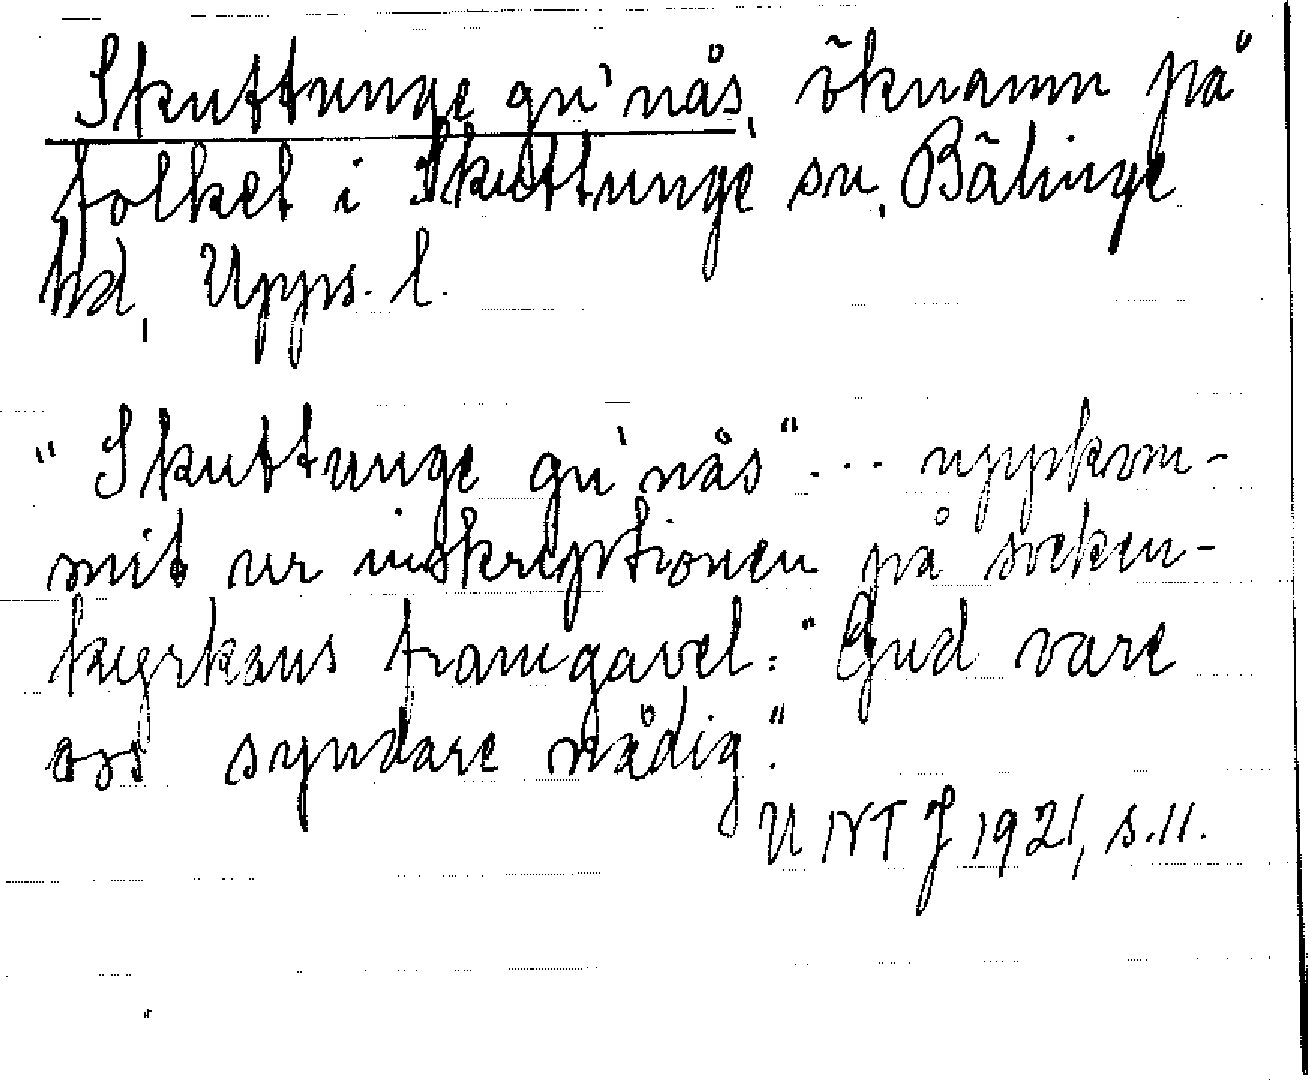 Skuttunge gu'nås, öknamn på
folket i Skuttunge sn, Bälinge
hd, Upps. l.
"Skuttunge gu'nås" ... uppkom-
mit ur inskriptionen på socken-
kyrkans framgavel: "Gud vare
oss syndare nådig".
UNTJ 1921, s. 11.